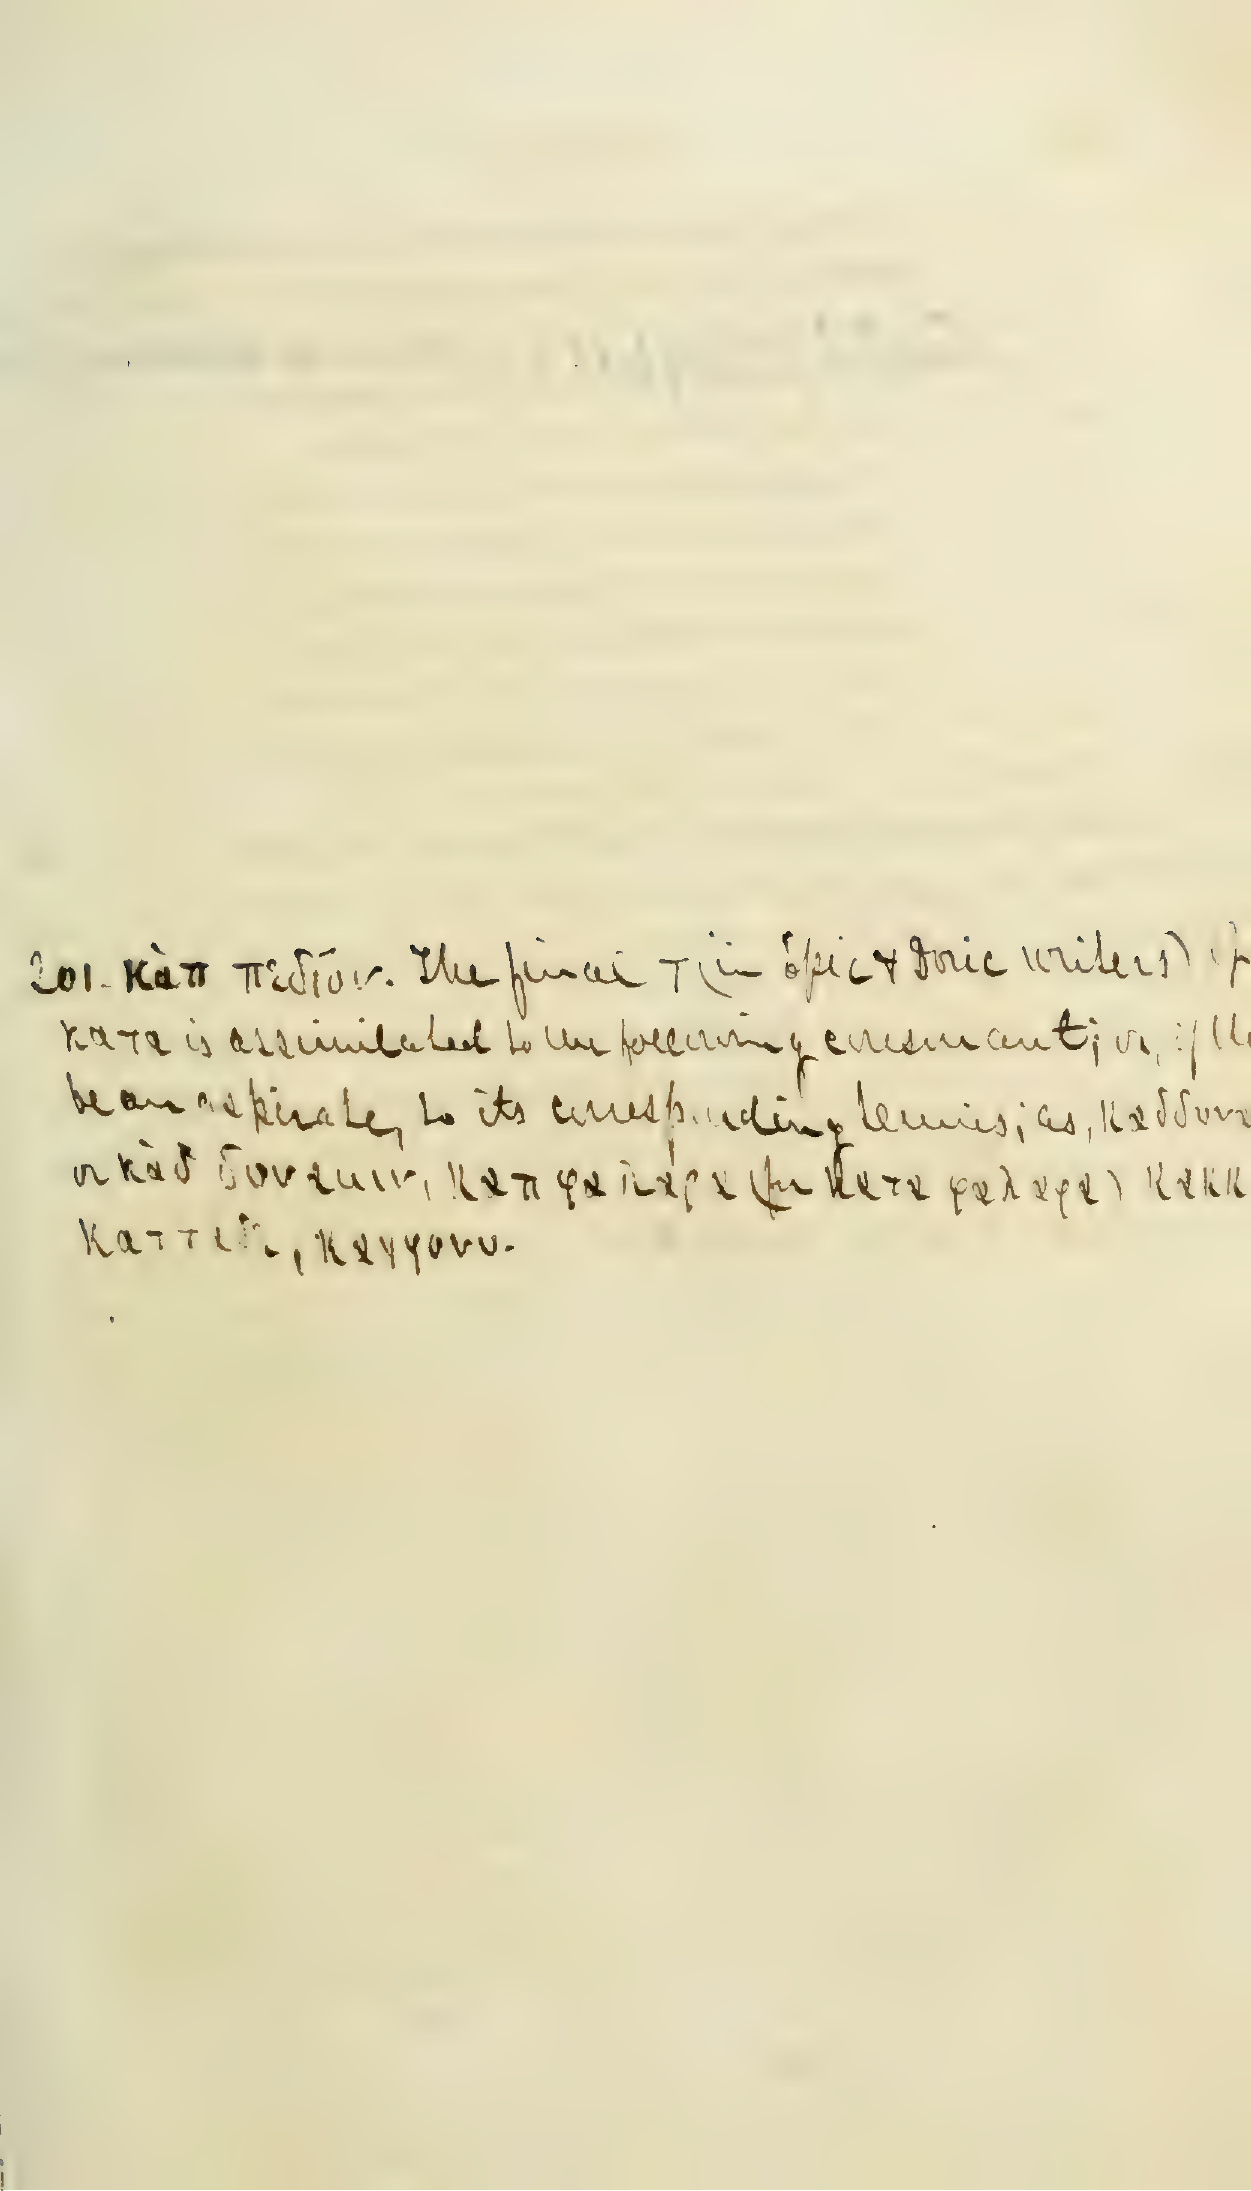 201. κὰπ πεδίον. The final τ (in Epic & Doric writers) of
κατα is assimilated to the following consonant; or, if the
be an aspirate, to its corresponding tenuis; as, καδδυνα
or κὰδ δυναμιν, καπ φαλαρα (for κατα φαλαρα) κακκ
καγγονυ.